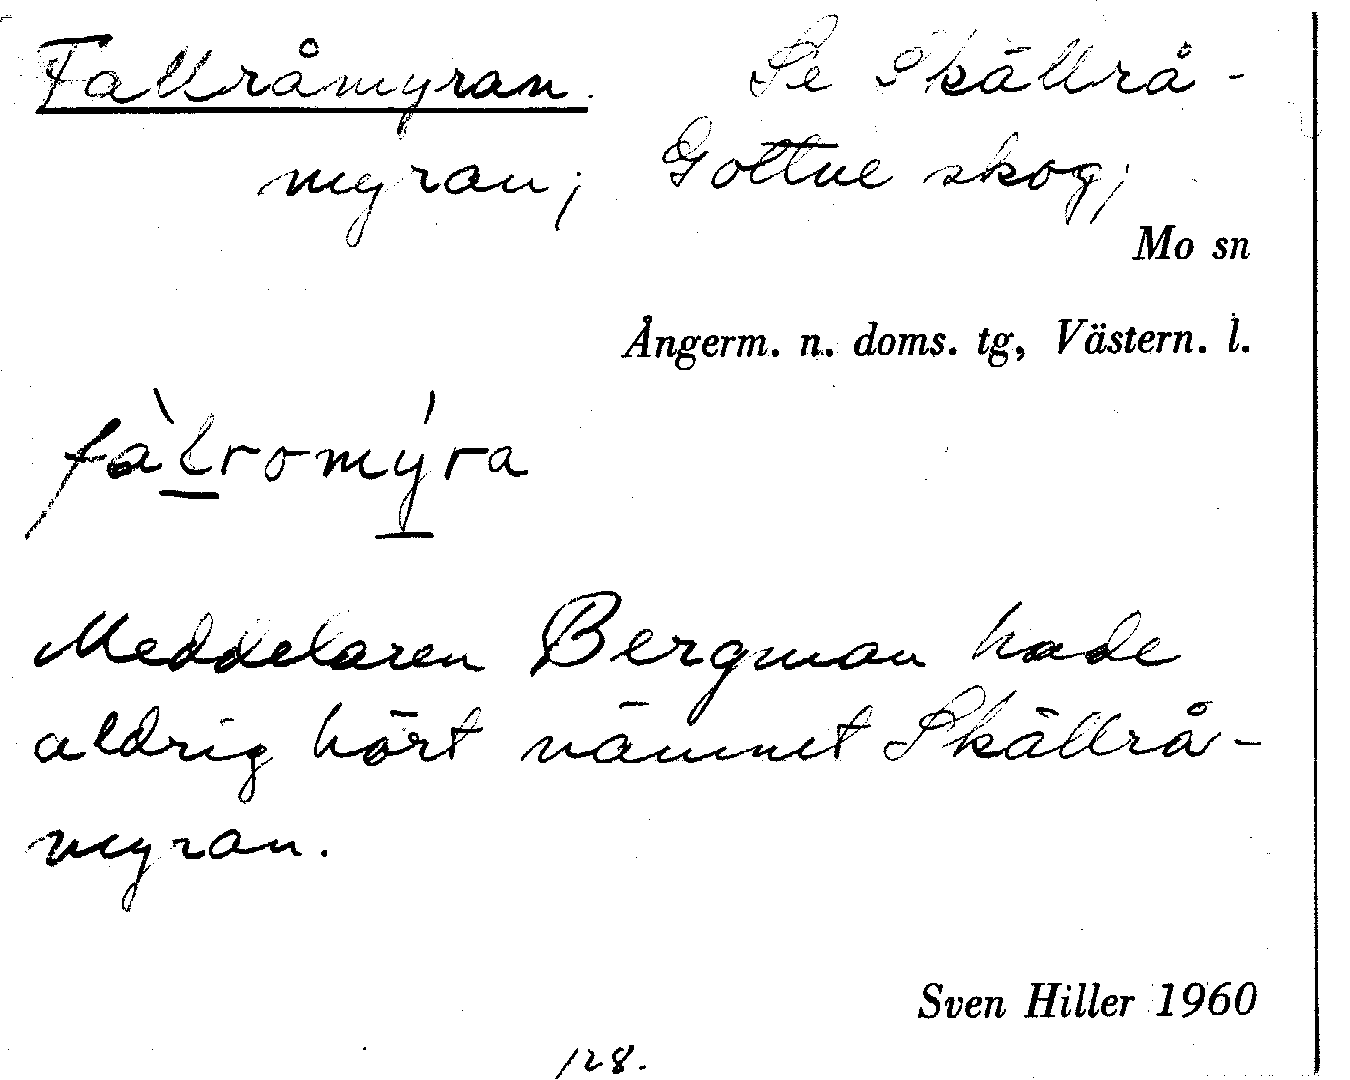 Fallråmyran. Se Skällrå-
myran; Gottne skog;
Mo sn
Ångerm. n. doms. tg, Västern. l.
fàlromýra
Meddelaren Bergman hade
aldrig hört nämnet Skällrå-
myran.
Sven Hiller 1960
128.